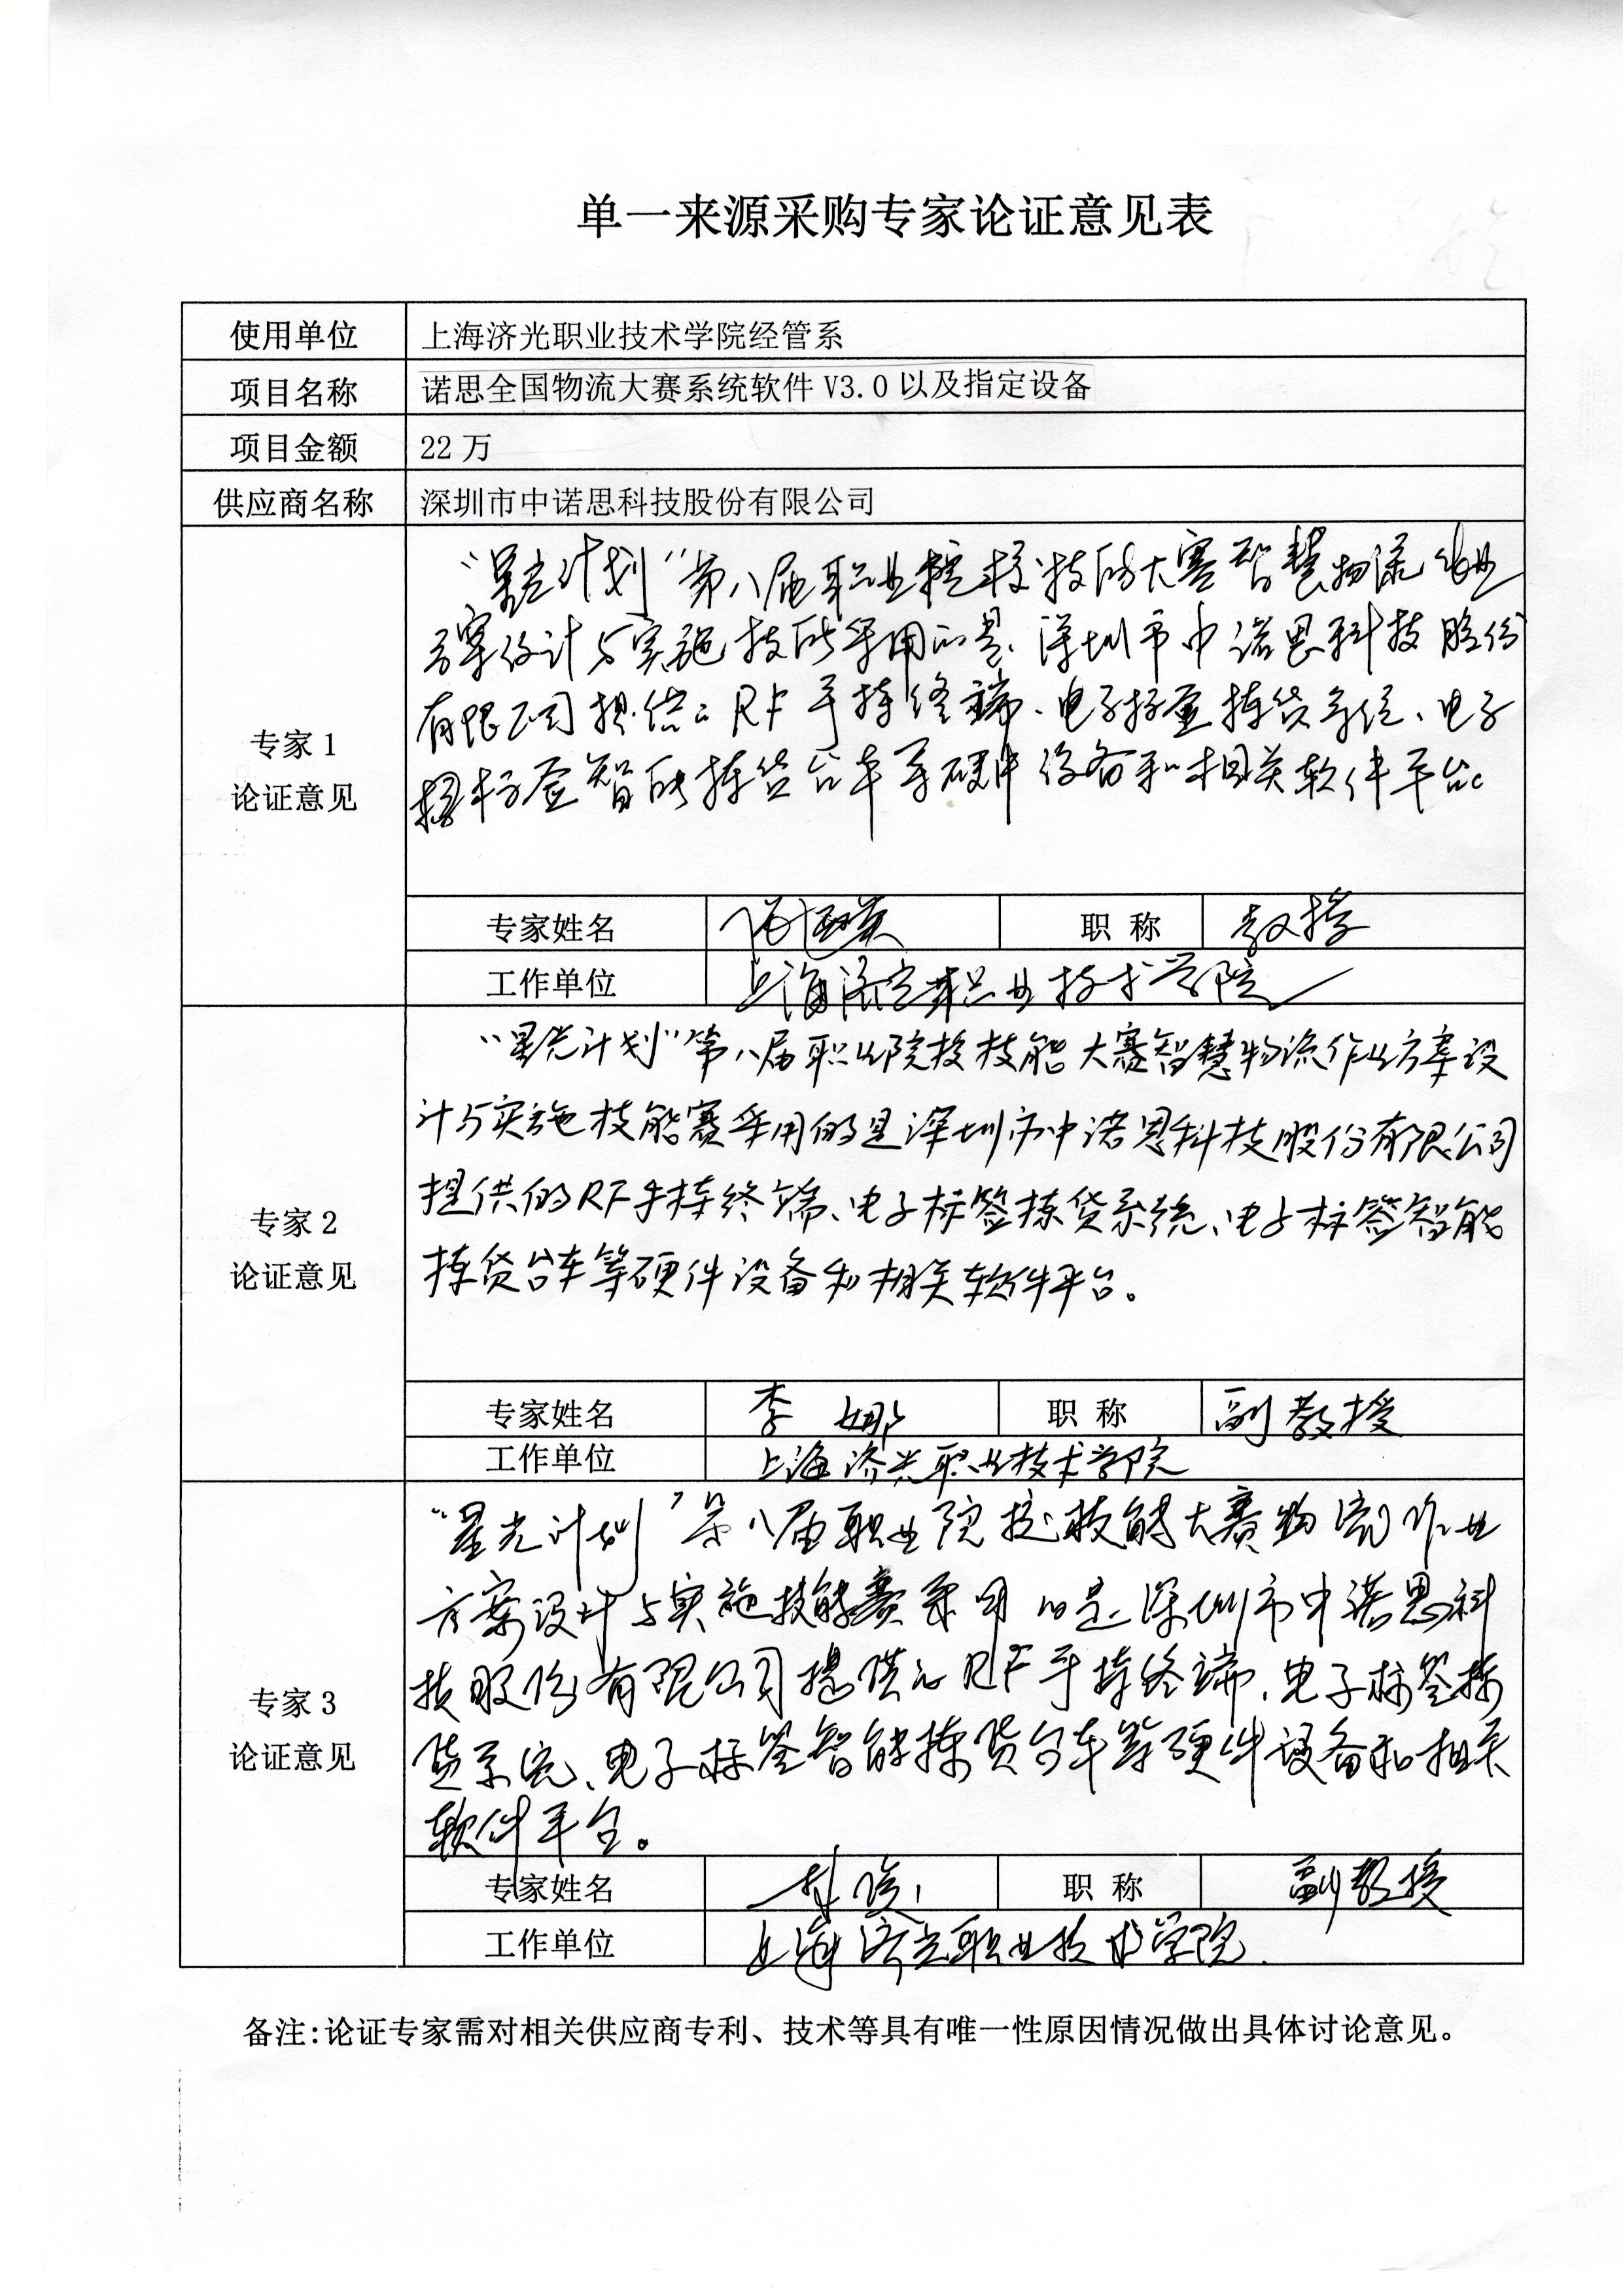 单一来源采购专家论证意见表
使用单位 上海济光职业技术学院经管系
项目名称 诺思全国物流大赛系统软件 V3.0 以及指定设备
项目金额 22 万
供应商名称 深圳市中诺思科技股份有限公司
专家 1
论证意见
“星光计划”第八届职业院校技能大赛智慧物流作业
方案设计与实施技能采用的是深圳市中诺思科技股份
有限公司提供的RF手持终端、电子标签拣货系统、电子
标签智能拣货台车等硬件设备和相关软件平台。
专家姓名 职 称 教授
工作单位 上海济光职业技术学院
专家 2
论证意见
“星光计划”第八届职业院校技能大赛智慧物流作业方案设
计与实施技能赛采用的是深圳市中诺思科技股份有限公司
提供的RF手持终端、电子标签拣货系统、电子标签智能
拣货台车等硬件设备和相关软件平台。
专家姓名 李娜 职 称 副教授
工作单位 上海济光职业技术学院
专家 3
论证意见
“星光计划”第八届职业院校技能大赛物流作业
方案设计与实施技能赛采用的是深圳市中诺思科
技股份有限公司提供的RF手持终端、电子标签拣
货系统、电子标签智能拣货台车等硬件设备和相关
软件平台。
专家姓名 职 称 副教授
工作单位 上海济光职业技术学院
备注:论证专家需对相关供应商专利、技术等具有唯一性原因情况做出具体讨论意见。